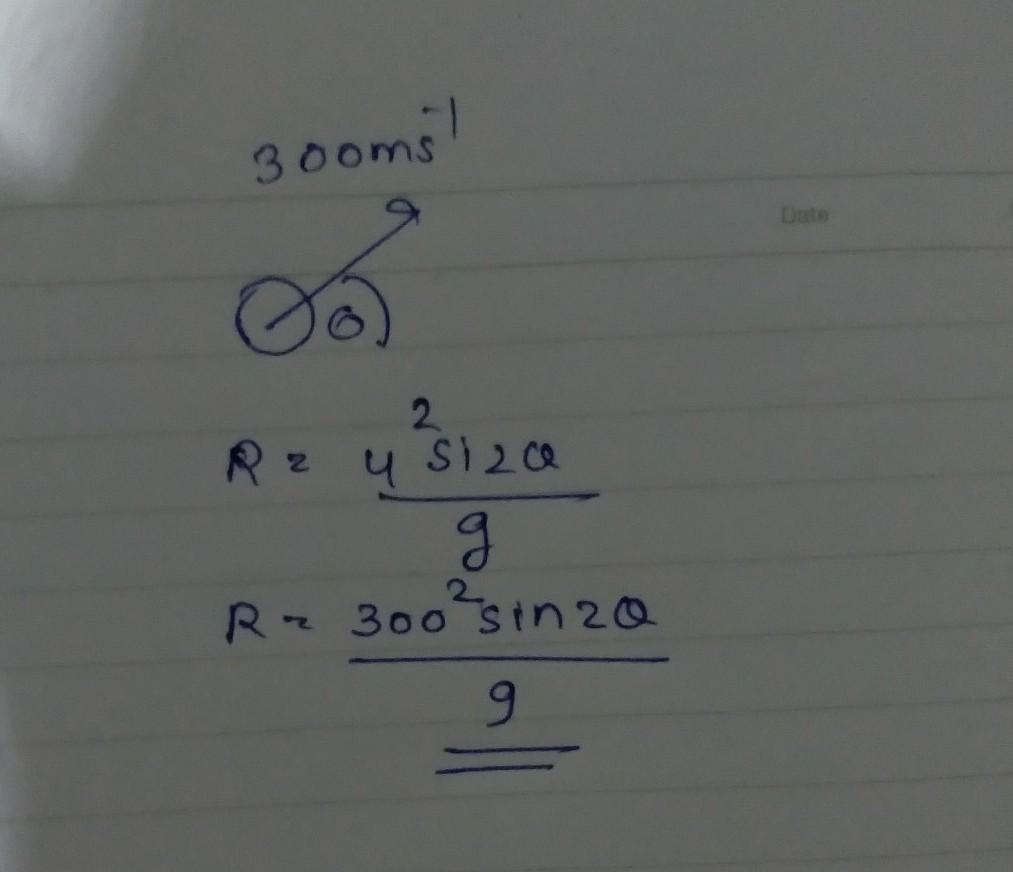 300ms⁻¹
Date
θ
R = u² si2θ / g
R = 300² sin2θ / g